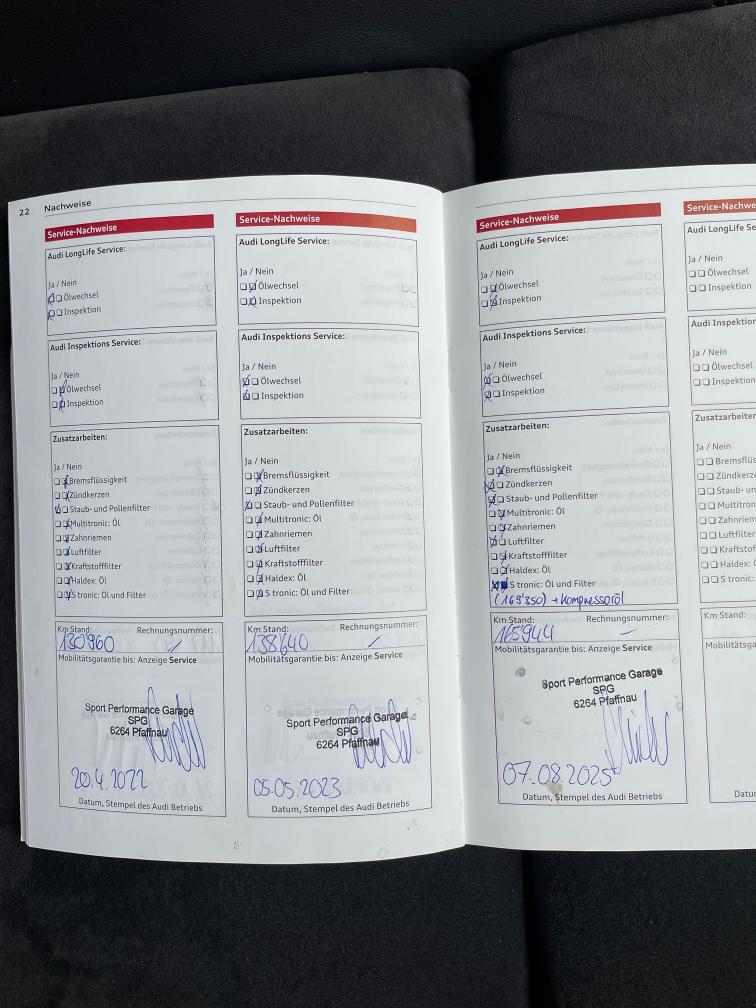 22 Nachweise
Service-Nachweise
Audi LongLife Service:
Ja / Nein
Ölwechsel
Inspektion
Audi Inspektions Service:
Ja / Nein
Ölwechsel
Inspektion
Zusatzarbeiten:
Ja / Nein
Bremsflüssigkeit
Zündkerzen
Staub- und Pollenfilter
Multitronic: Öl
Zahnriemen
Luftfilter
Kraftstofffilter
Haldex: Öl
S tronic: Öl und Filter
Km Stand: Rechnungsnummer:
130'960
Mobilitätsgarantie bis: Anzeige Service
Sport Performance Garage
SPG
6264 Pfaffnau
20.4.2022
Datum, Stempel des Audi Betriebs
Service-Nachweise
Audi LongLife Service:
Ja / Nein
Ölwechsel
Inspektion
Audi Inspektions Service:
Ja / Nein
Ölwechsel
Inspektion
Zusatzarbeiten:
Ja / Nein
Bremsflüssigkeit
Zündkerzen
Staub- und Pollenfilter
Multitronic: Öl
Zahnriemen
Luftfilter
Kraftstofffilter
Haldex: Öl
S tronic: Öl und Filter
Km Stand: Rechnungsnummer:
138'640
Mobilitätsgarantie bis: Anzeige Service
Sport Performance Garage
SPG
6264 Pfaffnau
05.05.2023
Datum, Stempel des Audi Betriebs
Service-Nachweise
Audi LongLife Service:
Ja / Nein
Ölwechsel
Inspektion
Audi Inspektions Service:
Ja / Nein
Ölwechsel
Inspektion
Zusatzarbeiten:
Ja / Nein
Bremsflüssigkeit
Zündkerzen
Staub- und Pollenfilter
Multitronic: Öl
Zahnriemen
Luftfilter
Kraftstofffilter
Haldex: Öl
S tronic: Öl und Filter
(169'350) + Kompressoröl
Km Stand: Rechnungsnummer:
165'944
Mobilitätsgarantie bis: Anzeige Service
Sport Performance Garage
SPG
6264 Pfaffnau
07.08.2025
Datum, Stempel des Audi Betriebs
Service-Nachwe
Audi LongLife Se
Ja / Nein
Ölwechsel
Inspektion
Audi Inspektion
Ja / Nein
Ölwechsel
Inspektion
Zusatzarbeiten
Ja / Nein
Bremsflüs
Zündkerze
Staub- un
Multitron
Zahnriem
Luftfilter
Kraftstof
Haldex: Ö
S tronic:
Km Stand:
Mobilitätsga
Datum